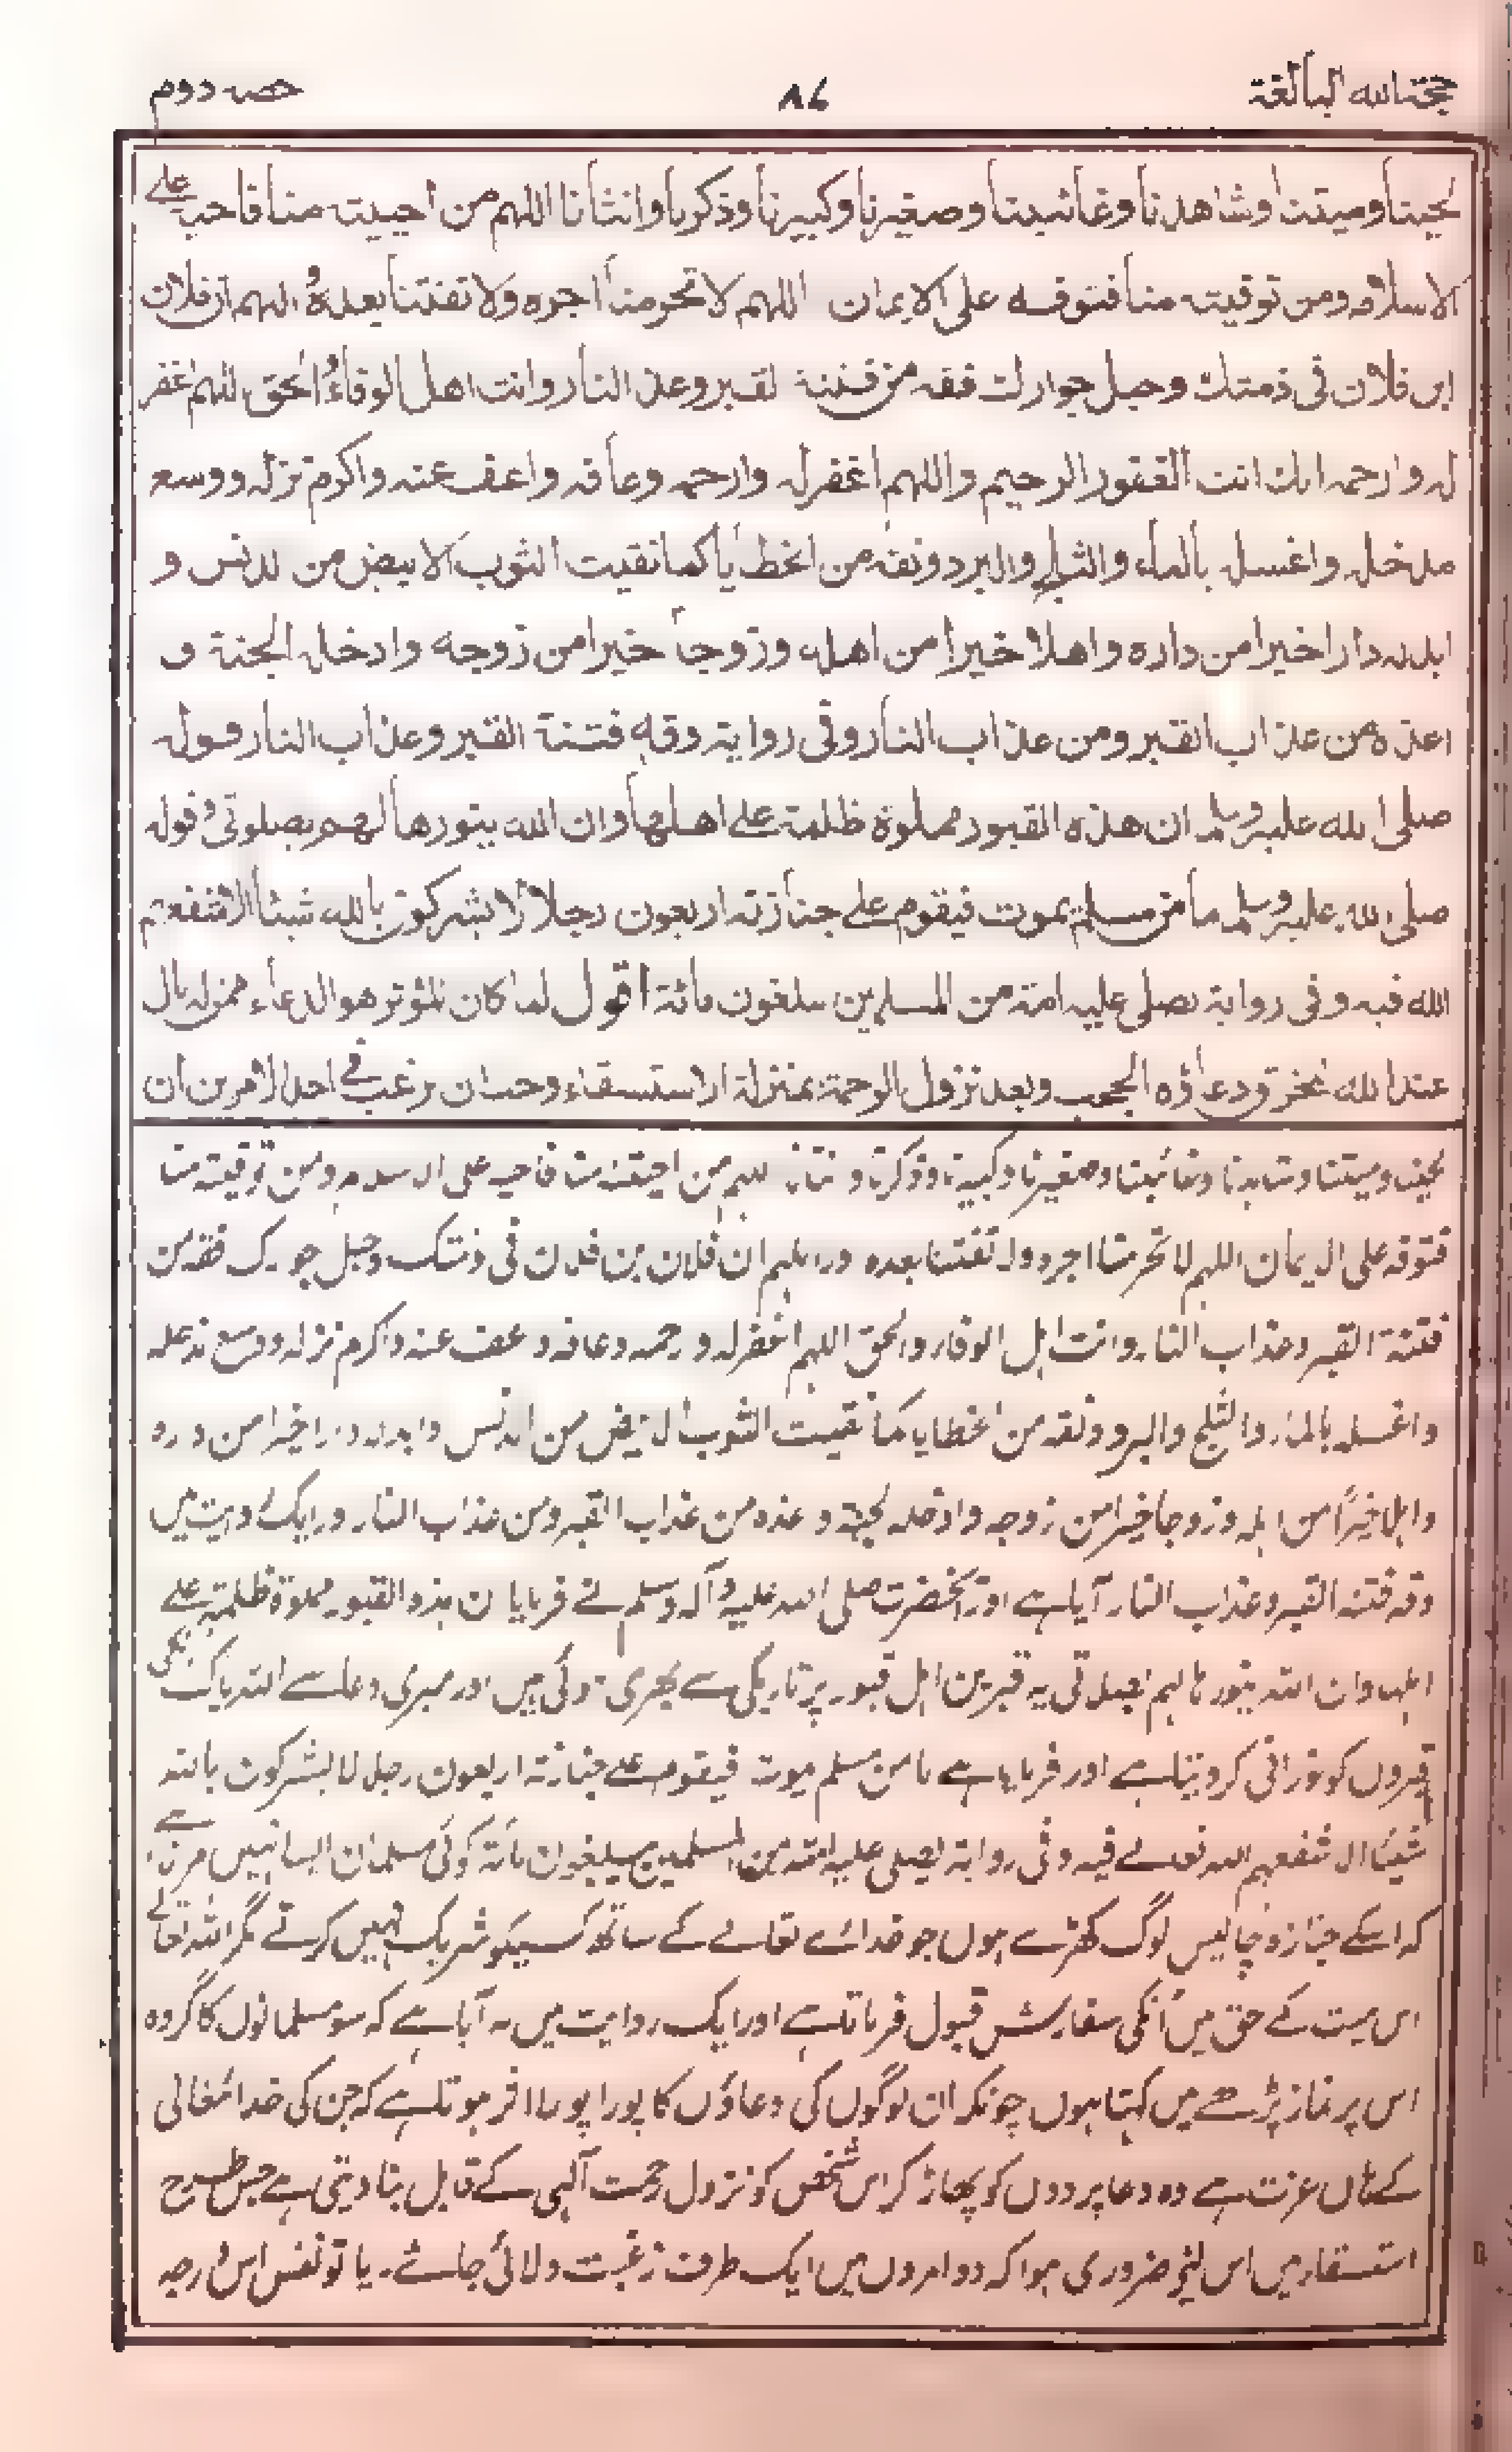 حجۃ اللہ البالغۃ ۸۷ حصہ دوم
لحینا ومیتنا وشاهدنا وغائبنا وصغیرنا وکبیرنا وذکرنا وانثانا اللهم من احییته منا فاحیه علے
الاسلام ومن توفیته منا فتوفه علی الایمان اللهم لا تحرمنا اجره ولا تفتنا بعده و اللهم ان فلان
ابن فلان فی ذمتك وحبل جوارك فقه من فتنة القبر وعذ النار وانت اهل الوفاء والحق اللهم اغفر
له وارحمه انك انت الغفور الرحیم واللهم اغفر له وارحمه وعافه واعف عنه واکرم نزله ووسع
مدخله واغسله بالماء والثلج والبرد ونقه من الخطایا کما نقیت الثوب الابیض من الدنس و
ابدله دارا خیرا من داره واهلا خیرا من اهله وزوجا خیرا من زوجه وادخله الجنة و
اعذه من عذاب القبر ومن عذاب النار وفی روایة وقه فتنة القبر وعذاب النار قوله
صلی الله علیه وسلم ان هذه القبور مملوة ظلمة علے اهلها وان الله ینورها لهم بصلوتی وقوله
صلی الله علیه وسلم ما من مسلم یموت فیقوم علے جنازته اربعون رجلا لا یشرکون بالله شیئا الا شفعهم
الله فیه وفی روایة یصلی علیه امة من المسلمین یبلغون مائة اقول لما کان المؤثر هو الدعاء ممن له بال
عند الله لیخرق دعاؤه الحجب ویعد نزول الرحمة بمنزلة الاستسقاء وجب ان یرغب فے احد الامرین ان
لحینا ومیتنا وشاہدنا وغائبنا وصغیرنا وکبیرنا وذکرنا و انثانا اللہم من احییتہ منا فاحیہ علی الاسلام ومن توفیتہ منا
فتوفہ علی الایمان اللہم لا تحرمنا اجرہ ولا تفتنا بعدہ اور اللہم ان فلان بن فلان فی ذمتک وحبل جوارک فقہ من
فتنۃ القبر وعذاب النار وانت اہل الوفاء والحق اللہم اغفر لہ وارحمہ وعافہ واعف عنہ واکرم نزلہ ووسع مدخلہ
واغسلہ بالماء والثلج والبرد ونقہ من الخطایا کما نقیت الثوب الابیض من الدنس وابدلہ دارا خیرا من دارہ
واہلا خیراً من اہلہ وزوجا خیرا من زوجہ وادخلہ الجنۃ واعذہ من عذاب القبر ومن عذاب النار اور ایک روایت میں
وقہ فتنۃ القبر وعذاب النار آیا ہے اور آنحضرت صلی اللہ علیہ وآلہ وسلم نے فرمایا ان ہذہ القبور مملوۃ ظلمۃ علے
اہلہا وان اللہ ینورہا لہم بصلوتی یہ قبریں اہل قبور پر تاریکی سے بھری ہوئی ہیں اور میری دعا سے اللہ پاک
قبروں کو نورانی کر دیتا ہے اور فرمایا ہے ما من مسلم یموت فیقوم علے جنازتہ اربعون رجلا لا یشرکون باللہ
شیئا الا شفعہم اللہ تعالے فیہ وفی روایۃ یصلی علیہ امۃ من المسلمین یبلغون مائۃ کوئی مسلمان ایسا نہیں مرتا ہے
کہ اسکے جنازہ پر چالیس لوگ کھڑے ہوں جو خدائے تعالے کے ساتھ کسیکو شریک نہیں کرتے مگر اللہ تعالے
اس میت کے حق میں اُنکی سفارش قبول فرماتا ہے اور ایک روایت میں یہ آیا ہے کہ سو مسلمانوں کا گروہ
اس پر نماز پڑھے میں کہتا ہوں چونکہ ان لوگوں کی دعاؤں کا پورا پورا اثر ہوتا ہے کہ جن کی خدا تعالی
کے ہاں عزت ہے وہ دعا پردوں کو پھاڑ کر اس شخص کو نزول رحمت الٰہی کے قابل بنا دیتی ہے جس طرح
استسقاء میں اس لیے ضروری ہوا کہ دو امروں میں ایک طرف رغبت دلائی جائے۔ یا تو نفس اس درجہ